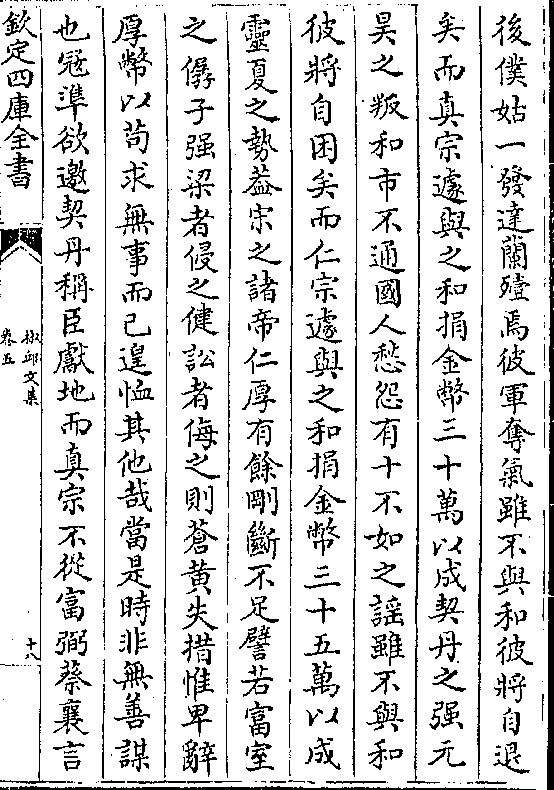 後僕姑一發達蘭殪焉彼軍奪氣雖不與和彼將自退
矣而真宗遽與之和捐金幣三十萬以成契丹之强元
昊之叛和市不通國人愁怨有十不如之謡雖不與和
彼將自困矣而仁宗遽與之和捐金幣三十五萬以成
靈夏之勢葢宋之諸帝仁厚有餘剛斷不足譬若富室
之孱子强梁者侵之健訟者侮之則蒼黄失措惟卑辭
厚幣以苟求無事而已遑恤其他哉當是時非無善謀
也冦準欲邀契丹稱臣獻地而真宗不從富弼蔡襄言
欽定四庫全書
卷五
十八